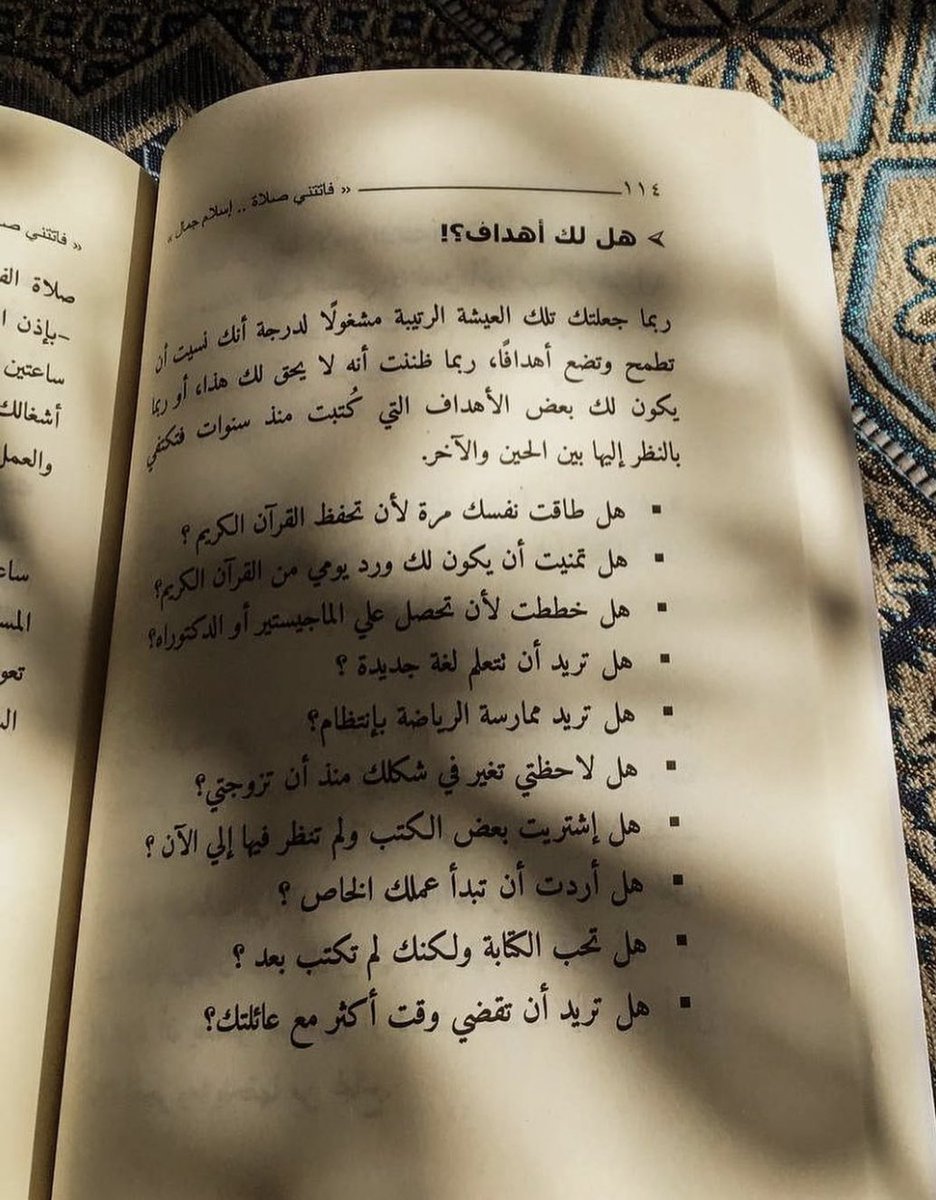 ١١٤ « فاتتني صلاة .. إسلام جمال »
هل لك أهداف؟!
ربما جعلتك تلك العيشة الرتيبة مشغولًا لدرجة أنك نسيت أن
تطمح وتضع أهدافًا، ربما ظننت أنه لا يحق لك هذا، أو ربما
يكون لك بعض الأهداف التي كُتبت منذ سنوات فتكتفي
بالنظر إليها بين الحين والآخر.
▪ هل طاقت نفسك مرة لأن تحفظ القرآن الكريم ؟
▪ هل تمنيت أن يكون لك ورد يومي من القرآن الكريم؟
▪ هل خططت لأن تحصل علي الماجيستير أو الدكتوراه؟
▪ هل تريد أن نتعلم لغة جديدة ؟
▪ هل تريد ممارسة الرياضة بإنتظام؟
▪ هل لاحظتي تغير في شكلك منذ أن تزوجتي؟
▪ هل إشتريت بعض الكتب ولم تنظر فيها إلي الآن ؟
▪ هل أردت أن تبدأ عملك الخاص ؟
▪ هل تحب الكتابة ولكنك لم تكتب بعد ؟
▪ هل تريد أن تقضي وقت أكثر مع عائلتك؟
« فاتتني
صلاة
-بإذن
ساعتين
أشغالك
والعمل